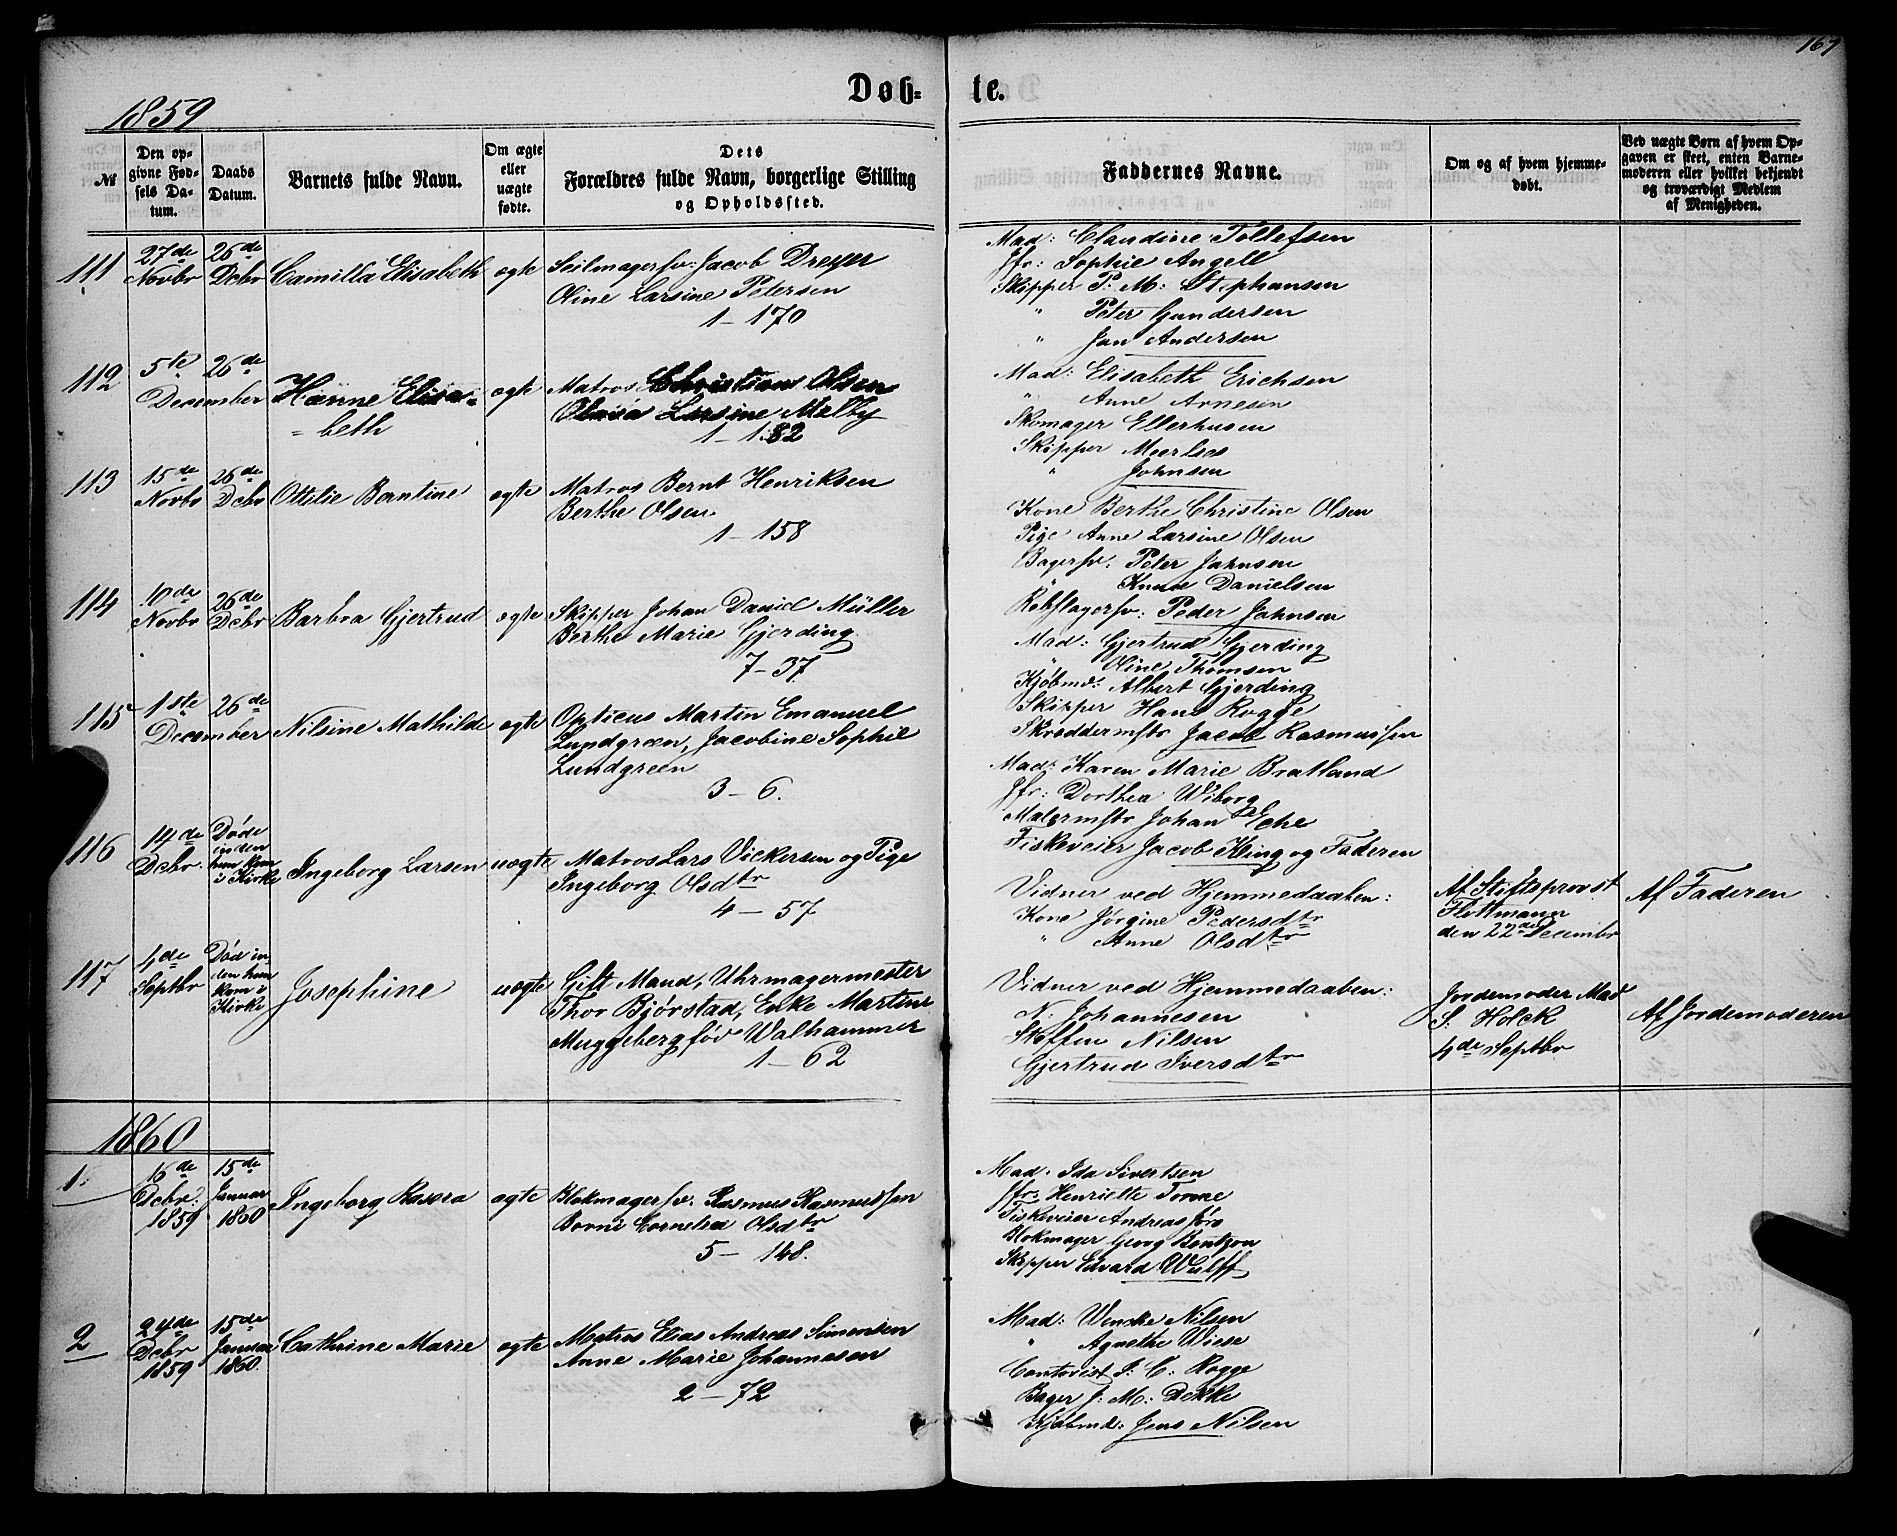 167
Døb-
te.
1859
№
Den op-
givne Fød-
sels Da-
tum.
Daabs
Datum.
Barnets fulde Navn.
Om ægte
eller
uægte
fødte.
Dets
Forældres fulde Navn, borgerlige Stilling
og Opholdssted.
Faddernes Navne.
Om og af hvem hjemme-
døbt.
Ved uægte Børn af hvem Op-
gaven er skeet, enten Barne-
moderen eller hvilket bekjendt
og troværdigt Medlem
af Menigheden.
111
27de
Novbr
26de
Dcbr
Camilla Elisabeth
ægte
Seilmagersv: Jacob Dreyer
Oline Larsine Petersen
1 - 170
Mad: Claudine Tollefsen
Jfr: Sophie Angell
Skipper P: M: Stephansen
" Peter Gundersen
" Jan Andersen
112
5te
December
26de
Hanne Elisa-
beth
ægte
Matros Christian Olsen
Larsine Melby
1 - 182
Mad: Elisabeth Erichsen
" Anne Arnesen
Skomager Ellerhusen
Skipper
" Johnsen
113
15de
Novbr
26de
Dcbr
Ottilie Berntine
ægte
Matros Bernt Henriksen
Berthe Olsen
1 - 158
Kone Berthe Christine Olsen
Pige Anne Larsine Olsen
Bagersv. Peter Johnsen
" Danielsen
Rebslagersv: Peder Johnsen
114
Novbr
26de
Dcbr
Barbra Gjertrud
ægte
Skipper Johan Daniel Müller
Berthe Marie Gjerding
7 - 37
Mad: Gjertrud Gjerding
" Oline Thomsen
Kjøbmd: Albert Gjerding
Skipper Hans Rogge
Skræddermstr Jacob Rasmussen
115
1ste
December
26de
Nilsine Mathilde
ægte
Opticus Martin Emanuel
Lundgreen, Jacobine Sophie
Lundgreen
3 - 6.
Mad: Karen Marie Bratland
Jfr: Dorthea Wiborg
Malermstr Johan
Fiskeveier Jacob Kling og Faderen
116
14de
Dcbr.
Døde
inden
hun kom
i Kirke
Ingeborg Larsen
uægte
Matros Lars Vickersen og Pige
Ingeborg Olsdtr
4 - 57
Vidner ved Hjemmedaaben:
Kone Jørgine Pedersdtr
" Anne Olsdtr
Af Stiftsprovst
Flottmann
den 22de Decembr
Af Faderen
117
4de
Septbr
Død in-
den hun
kom i
Kirke
Josephine
uægte
Gift Mand, Uhrmagermester
Thor Bjørstad, Enke Martine
Muggeberg før Walhammer
1 - 62
Vidner ved Hjemmedaaben:
N: Johannesen
Steffen Nilsen
Gjertrud Iversdtr
Jordemoder Mad
S: Holck
4de Septbr
Af Jordemoderen
1860
1.
16de
Dcbr.
1859
15de
Januar
1860
Ingeborg
ægte
Blokmagersv. Rasmus Rasmussen
Cornelia Olsdtr
5 - 148.
Mad. Ida Sivertsen
Jfr: Henriette
Fiskeveier Andreas
Blokmager Georg Bentzon
Skipper Edvard Wulff
2
24de
Dcbr
1859
15de
Januar
1860.
Cathrine Marie
ægte
Matros Elias Andreas Simonsen
Anne Marie Johannesen
2 - 72
Mad: Wencke Nilsen
" Agnethe Wiese
Contorist J: C: Rogge
Bager J: M: Dekke
Kjøbmd: Jens Nilsen